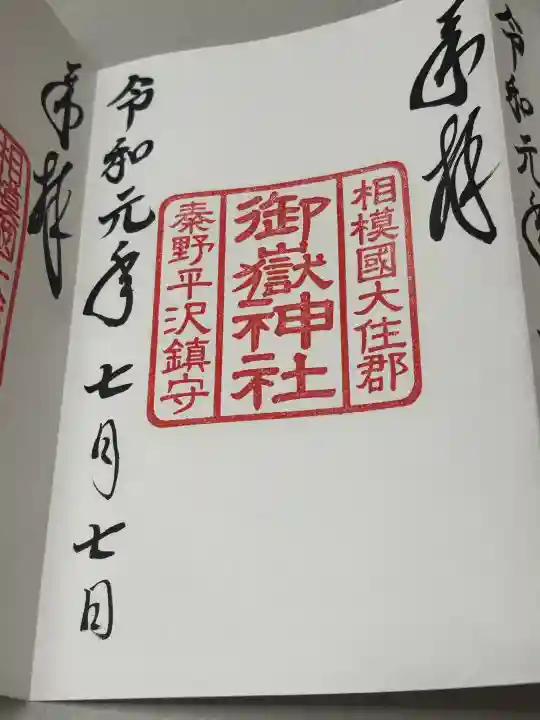 令和元年
奉拝
相模國大住郡
御嶽神社
秦野平沢鎮守
令和元年七月七日
奉拝
相模國一